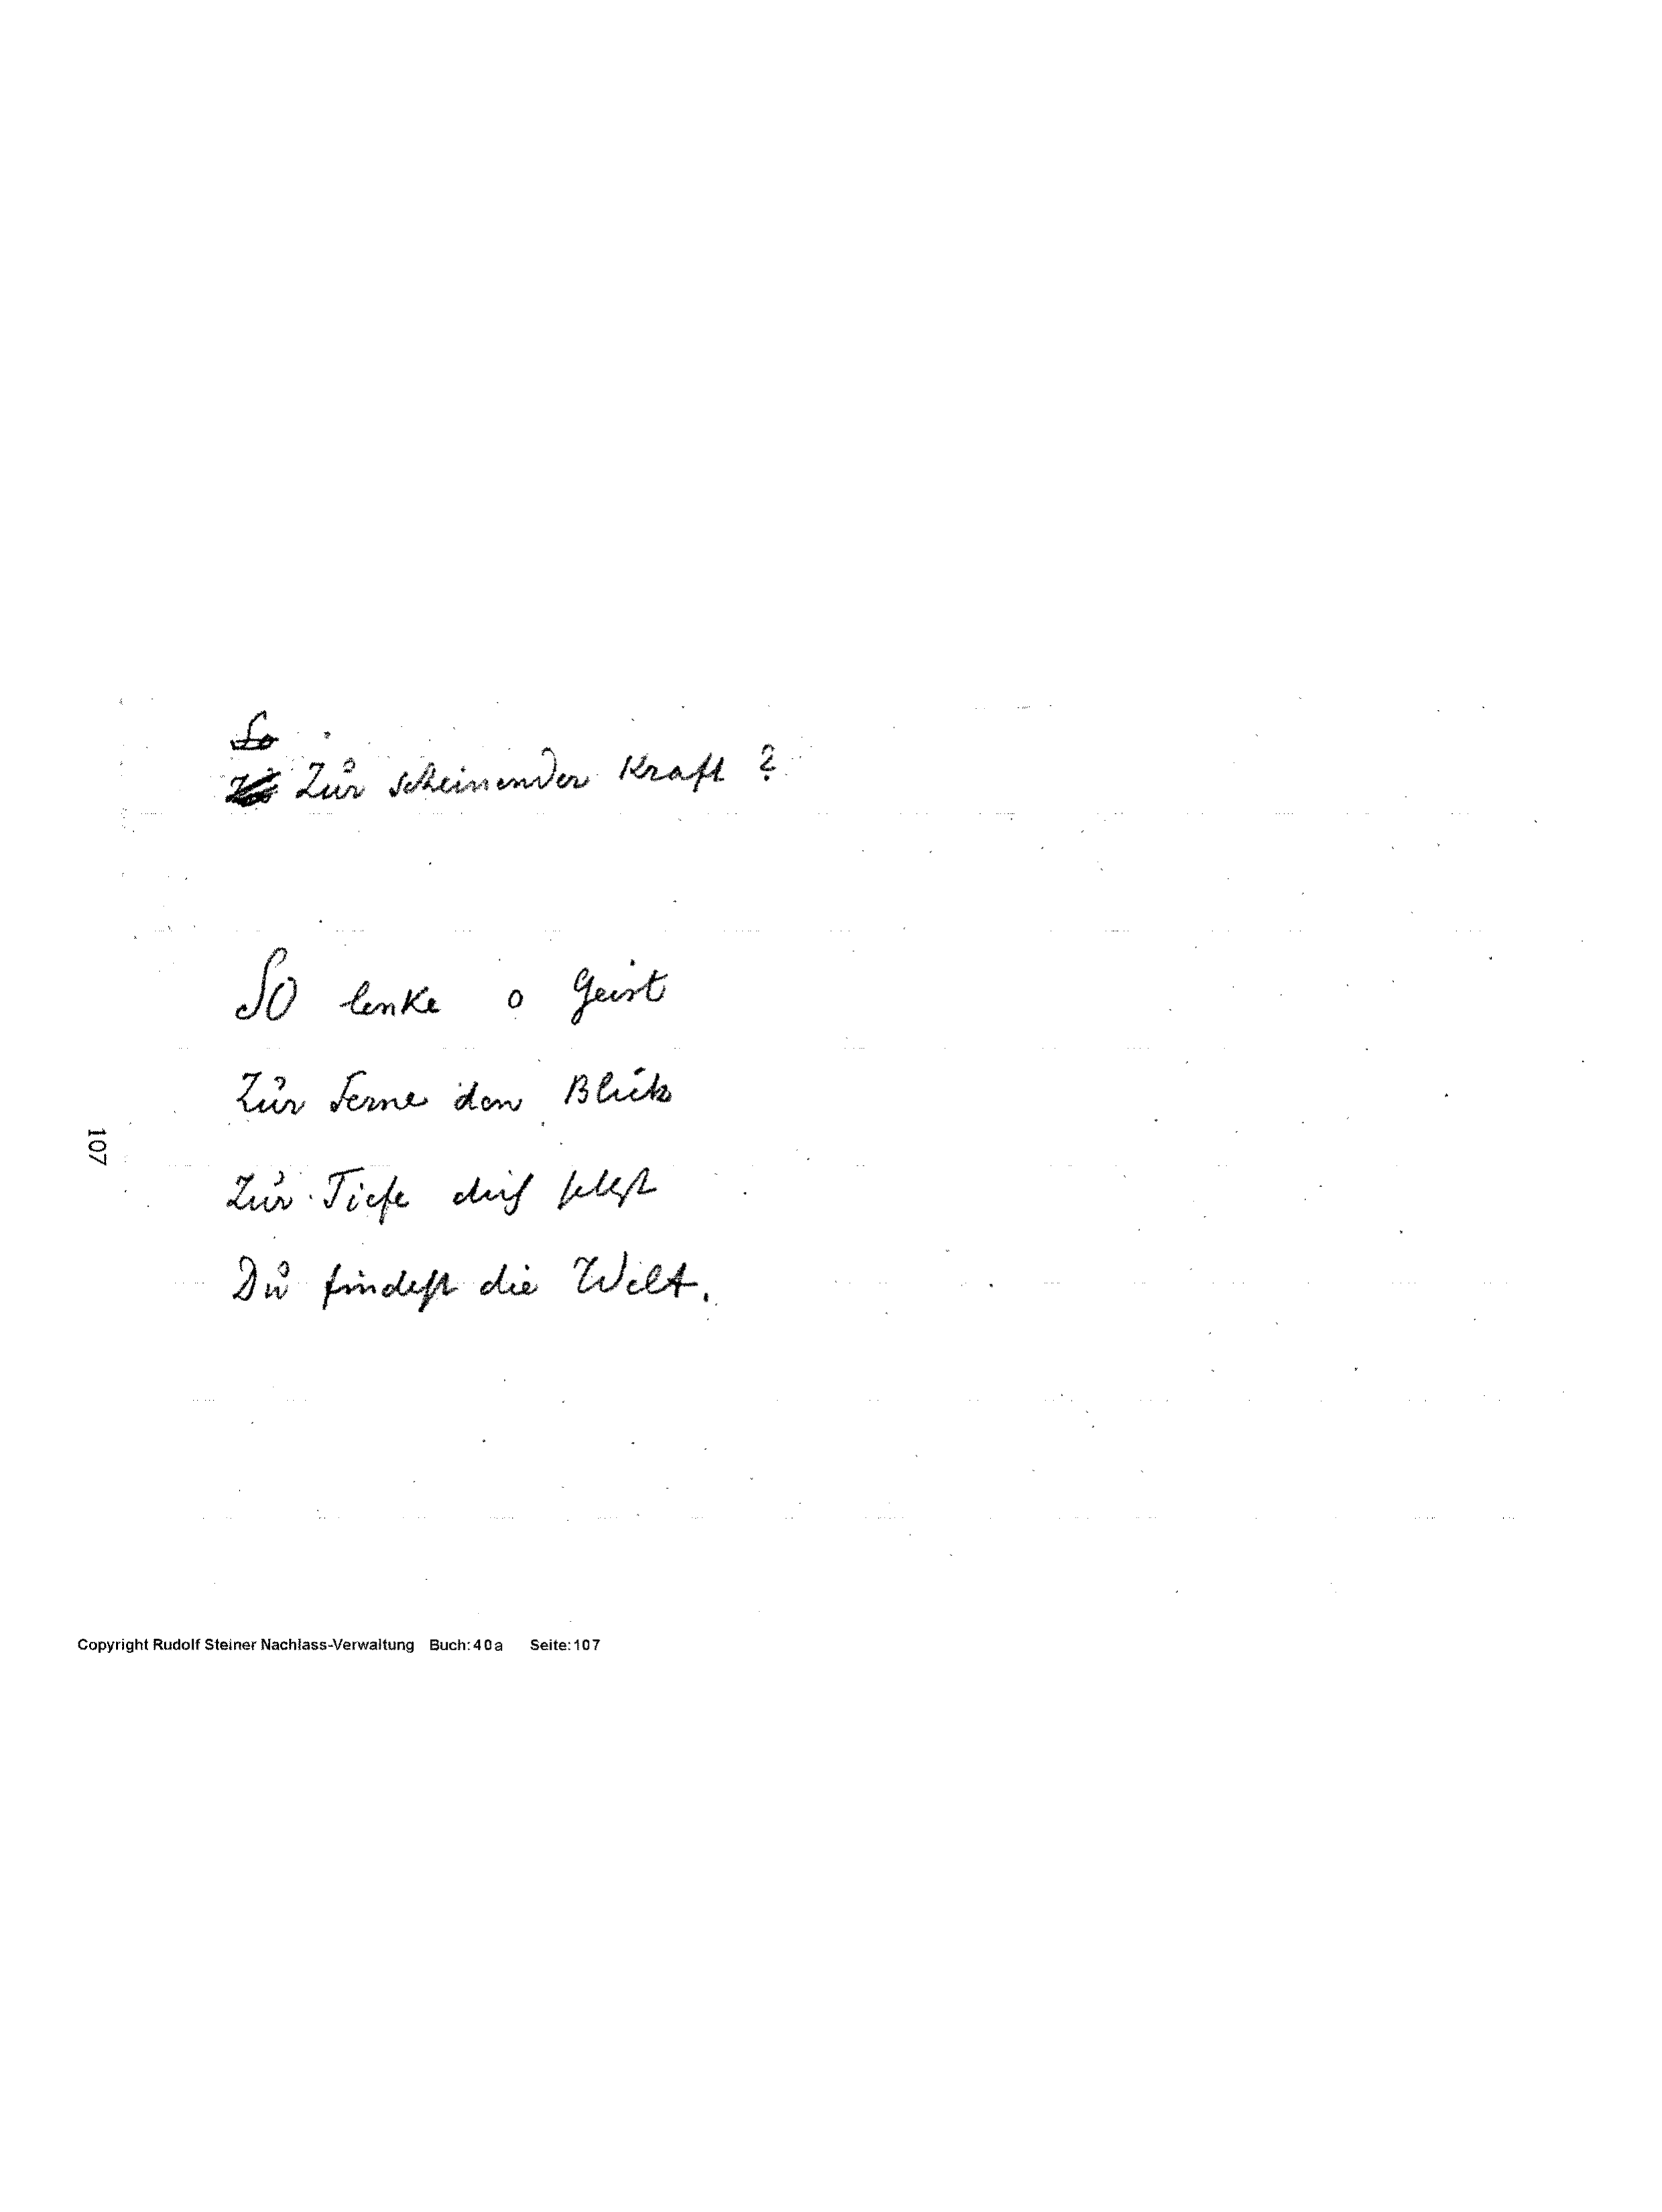 So
Zur scheinender Kraft ?
So lenke o Geist
Zur Ferne den Blick
Zur Tiefe dich selbst
Du findest die Welt.
107
Copyright Rudolf Steiner Nachlass-Verwaltung Buch: 40a Seite: 107